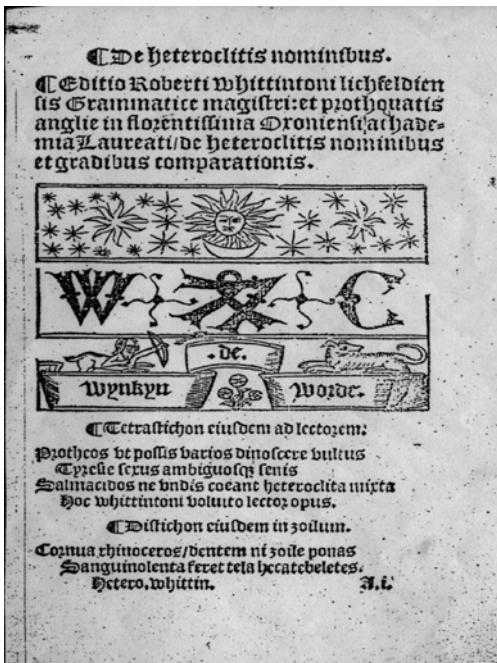 ⸿De heteroclitis nominibus.
⸿Editio Roberti Whittintoni lichfeldien
sis Grammatice magistri: et prothouatis
anglie in florentissima Oxoniensi achade-
mia Laureati/de heteroclitis nominibus
et gradibus comparationis.
W C
.de.
wynkyn worde.
⸿Tetrastichon eiusdem ad lectorem.
Protheos vt possis varios dinoscere vultus
Tyresie sexus ambiguosqꝫ senis
Salmacidos ne vndis coeant heteroclita mixta
Hoc whittintoni voluito lector opus.
⸿Distichon eiusdem in zoilum.
Cornua rhinoceros/dentem ni zoile ponas
Sanguinolenta feret tela hecatebeletes.
Hetero.whittin. A.i.